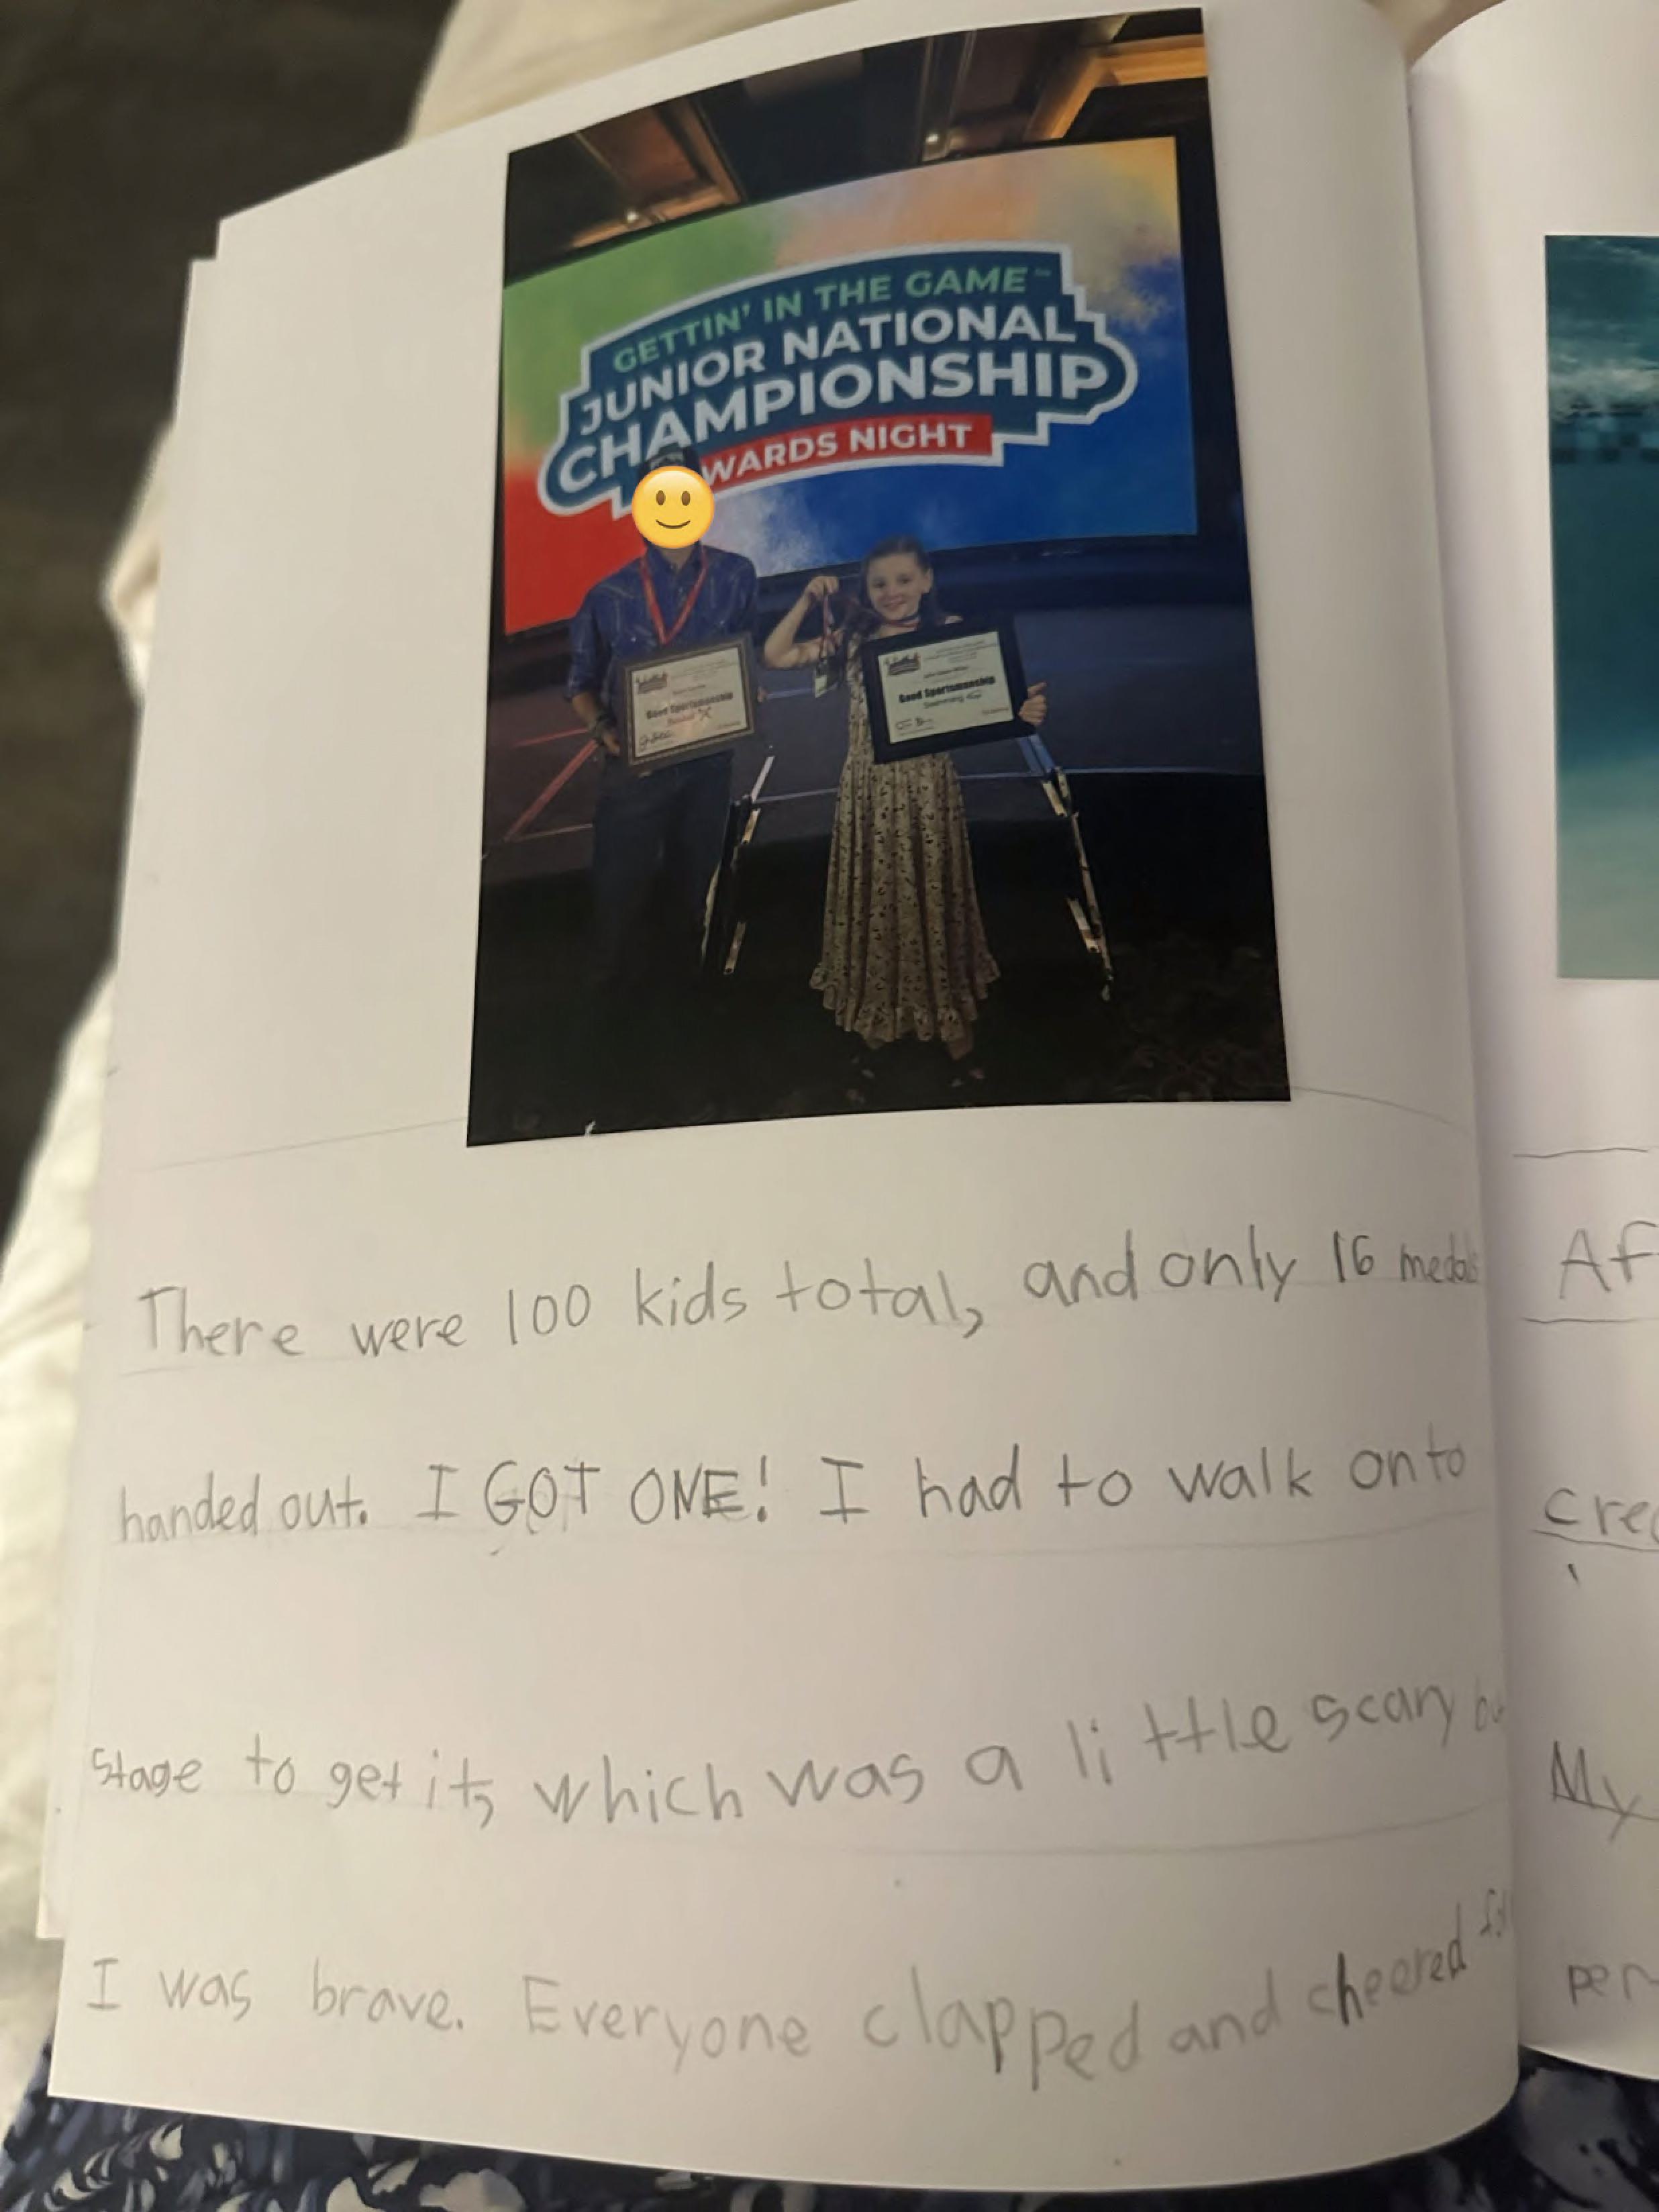 GETTIN' IN THE GAME
JUNIOR NATIONAL
CHAMPIONSHIP
WARDS NIGHT
Good Sportsmanship
Good Sportsmanship
Swimming
There were 100 kids total, and only 16 medals
handed out. I GOT ONE! I had to walk onto
stage to get it, which was a little scary bu
I was brave. Everyone clapped and cheered
Af
cre
My
per